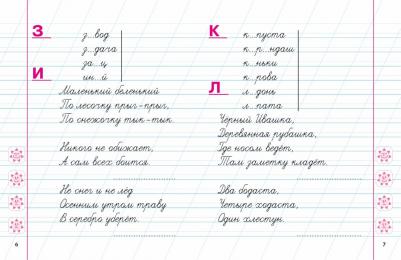 З
з...вод
з...дача
за...ц
ин...й
И
Маленький беленький
По лесочку прыг-прыг,
По снежочку тык-тык.
Никого не обижает,
А сам всех боится.
Не снег и не лёд,
Осенним утром траву
В серебро уберёт.
6
К
к...пуста
к...р...ндаш
к...ньки
к...рова
Л
л...донь
л...пата
Черный Ивашка,
Деревянная рубашка,
Где носом ведёт,
Там заметку кладёт.
Два бодаста,
Четыре ходаста,
Один хлестун.
7